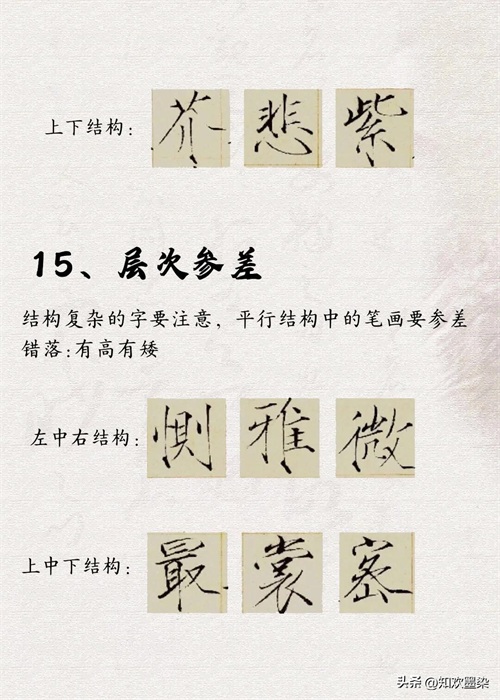 上下结构: 芥 悲 紫
15、层次参差
结构复杂的字要注意, 平行结构中的笔画要参差
错落:有高有矮
左中右结构: 恻 雅 微
上中下结构: 最 裳 密
头条 @知欢墨染